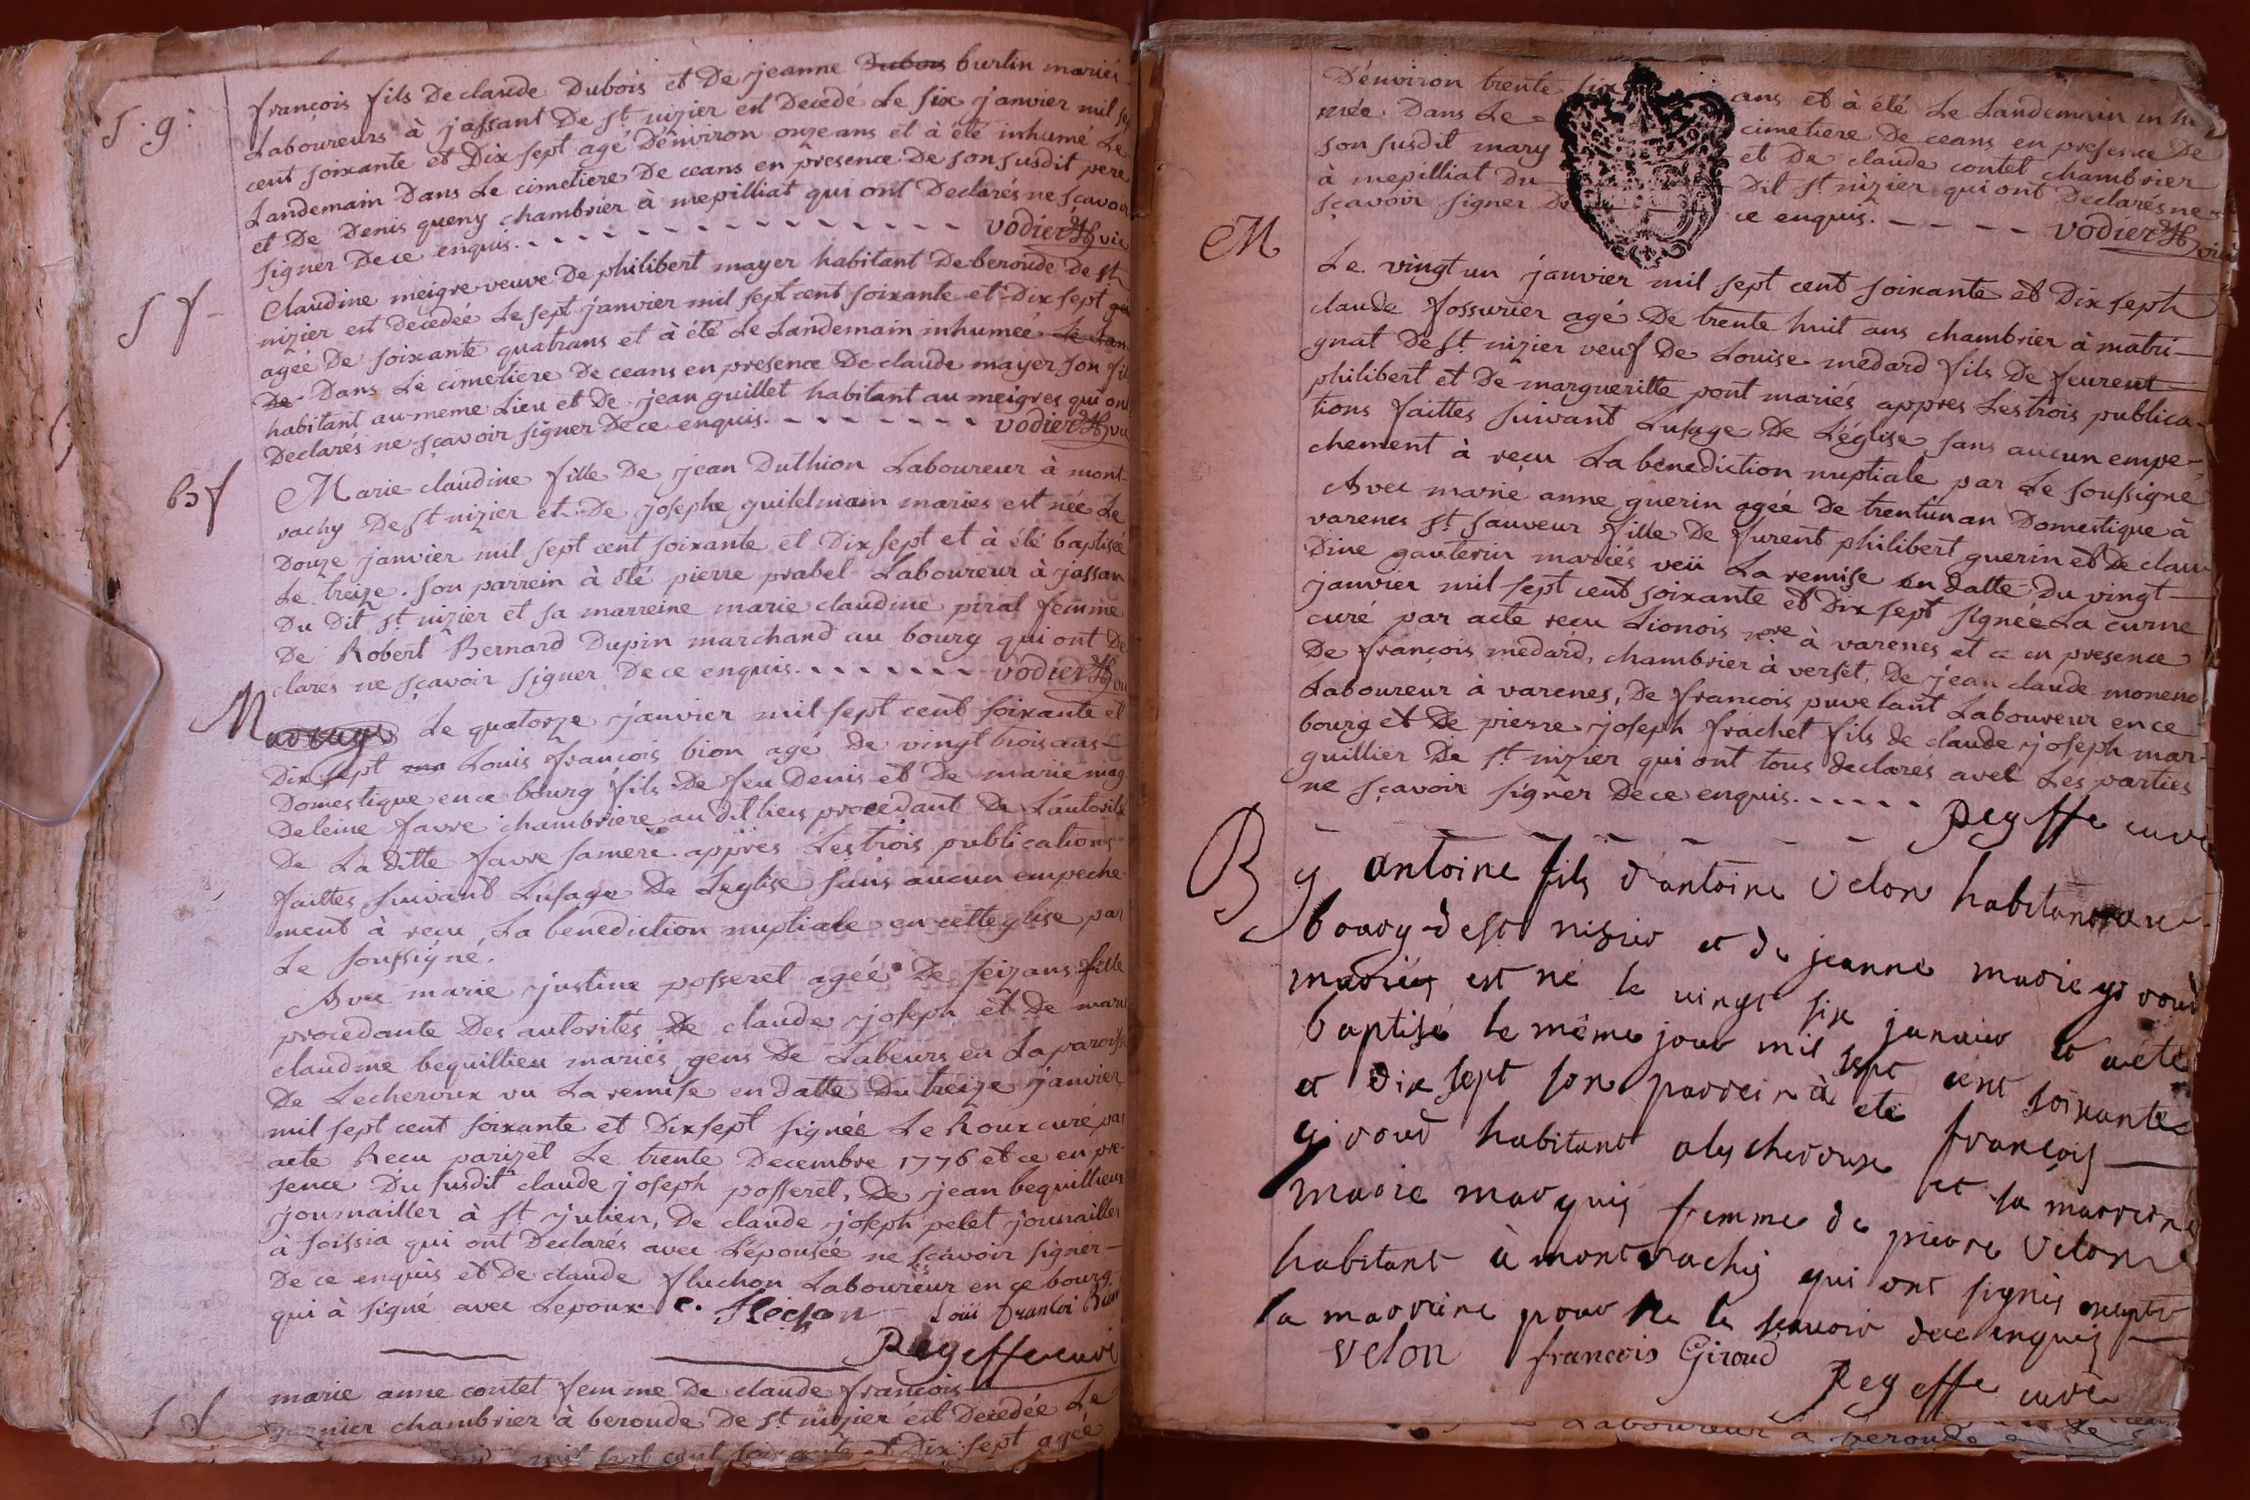 S. g.
françois fils De claude Dubois et De jeanne Dubois burtin mariés
Laboureurs à jassant De st nizier est Decedé Le six janvier mil sep
cent soixante et Dix sept agé D'environ onze ans et à été inhumé Le
Landemain Dans Le cimetiere De ceans en presence De son susdit pere
et De Denis queny chambrier à mepilliat qui ont Declarés ne sçavoir
signer De ce enquis. vodier vic
S f
Claudine meigre veuve De philibert mayer habitant De beroude De st
nizier est Decedée Le sept janvier mil sept cent soixante et Dix sept
agée De soixante quatr'ans et à été Le Landemain inhumeé Le Lan
De Dans Le cimetiere De ceans en presence De claude mayer son fils
habitant au meme Lieu et De jean guillet habitant au meigres qui on
Declarés ne sçavoir signer De ce enquis. vodier vic
B f
Marie claudine fille De jean Duthion Laboureur à mont-
vachy De st nizier et De josephe guilelmain mariés est née Le
Douze janvier mil sept cent soixante et Dix sept et à été baptisée
Le treize. son parrein à été pierre prabel Laboureur à jassan
Du Dit st nizier et sa marreine marie claudine piral femme
De Robert Bernard Dupin marchand au bourg qui ont De
clarés ne sçavoir signer De ce enquis. vodier vic
Mariage Le quatorze janvier mil sept cent soixante et
Dix sept ma Louis françois bion agé de vingt trois ans
Domestique en ce bourg fils De feu Denis et De marie mag
Deleine favre chambriere au dit lieu procedant De L'autorité
De La ditte favre sa mere appres Les trois publications
faittes suivant L'usage De L'eglise sans aucun empeche
ment à recu La benediction nuptiale en cette eglise par
Le soussigné.
Avec marie justine posseret agéé De seiz ans fille
procedante Des autorités De claude joseph et De marie
claudine bequillieu mariés gens De Labeurs en La paroisse
De Lecheroux vu La remise en datte Du treize janvier
mil sept cent soixante et Dix sept signéé Le Roux curé par
acte Recu parizet Le trente Decembre 1776 et ce en pre-
sence Du susdit claude joseph posseret, De jean bequillieu
journailler à st julien, De claude joseph pelet journailler
à soissia qui ont Declarés avec L'épousée ne sçavoir signer
De ce enquis et De claude fluchon Laboureur en ce bourg
qui à signé avec Lepoux. c. flochon Loui francoi Bion
Regeffe curé
S f
marie anne contet femme De claude françois
garnier chambrier à beroude De st nizier est Decedée Le
mil sept cent soixante et Dix sept agée
D'environ trente six ans et à été Le Landemain inhu
mée Dans Le cimetiere De ceans en presence De
son susdit mary et De claude contet chambrier
à mepilliat Du Dit st nizier qui ont Declarés ne
sçavoir signer De ce enquis. vodier vic
M
Le vingt un janvier mil sept cent soixante et Dix sept
claude fossurier agé De trente huit ans chambrier à matri-
gnat De st. nizier veuf De Louise medard fils De feurent
philibert et De margueritte pont mariés appres Les trois publica-
tions faittes suivant L'usage De L'église sans aucun empe-
chement à reçu La benediction nuptiale par Le soussigné
Avec marie anne guerin agéé De trent'un an Domestique à
varenes st. sauveur fille De furent philibert guerin et De clau
Dine gauterin mariés veü La remise en datte Du vingt
janvier mil sept cent soixante et Dix sept signéé La curne
curé par acte recu Lionois nore à varenes et ce en presence
De françois medard, chambrier à verset, De jean claude moneno
Laboureur à varenes, De françois puvelant Laboureur en ce
bourg et De pierre joseph frachet fils de claude joseph mar-
guillier De st. nizier qui ont tous declarés avec Les parties
ne sçavoir signer De ce enquis. Regeffe curé
B g
antoine fils d'antoine velon habitant au
bourg de st nizier et de jeanne marie giroud
mariés est né le vingt six janvier et a été
baptisé le même jour mil sept cent soixante
et dix sept son parrein à eté françois
giroud habitant a lescheroux et sa marreine
marie marquis femme de pierre velon
habitant à montvachis qui ont signés excepté
la marreine pour ne le scavoir de ce enquis
velon francois Giroud
Regeffe curé
Laboureur a beroude